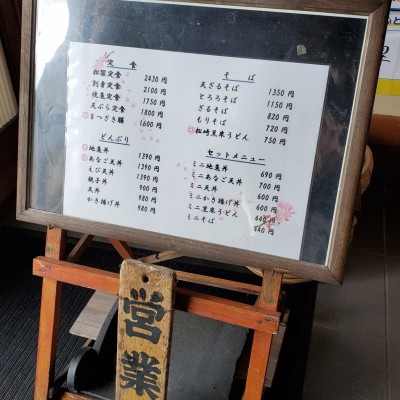 定食
松葉定食 2430円
刺身定食 2100円
焼魚定食 1750円
天ぷら定食 1800円
◎まつざき膳 1600円
どんぶり
◎地魚丼 1390円
◎あなご天丼 1390円
えび天丼 1390円
親子丼 900円
天丼 980円
かき揚げ丼 980円
そば
天ざるそば 1350円
とろろそば 1150円
ざるそば 820円
もりそば 720円
◎松崎黒米うどん 750円
セットメニュー
◎ミニ地魚丼 690円
◎ミニあなご天丼 700円
ミニ天丼 600円
ミニかき揚げ丼 600円
◎ミニ黒米うどん 440円
ミニそば 440円
営業